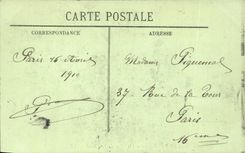 CARTE POSTALE
CORRESPONDANCE
ADRESSE
Paris 16 Avril
1910
Madame Piquemal
37 - Rue de la Tour
Paris
16eme